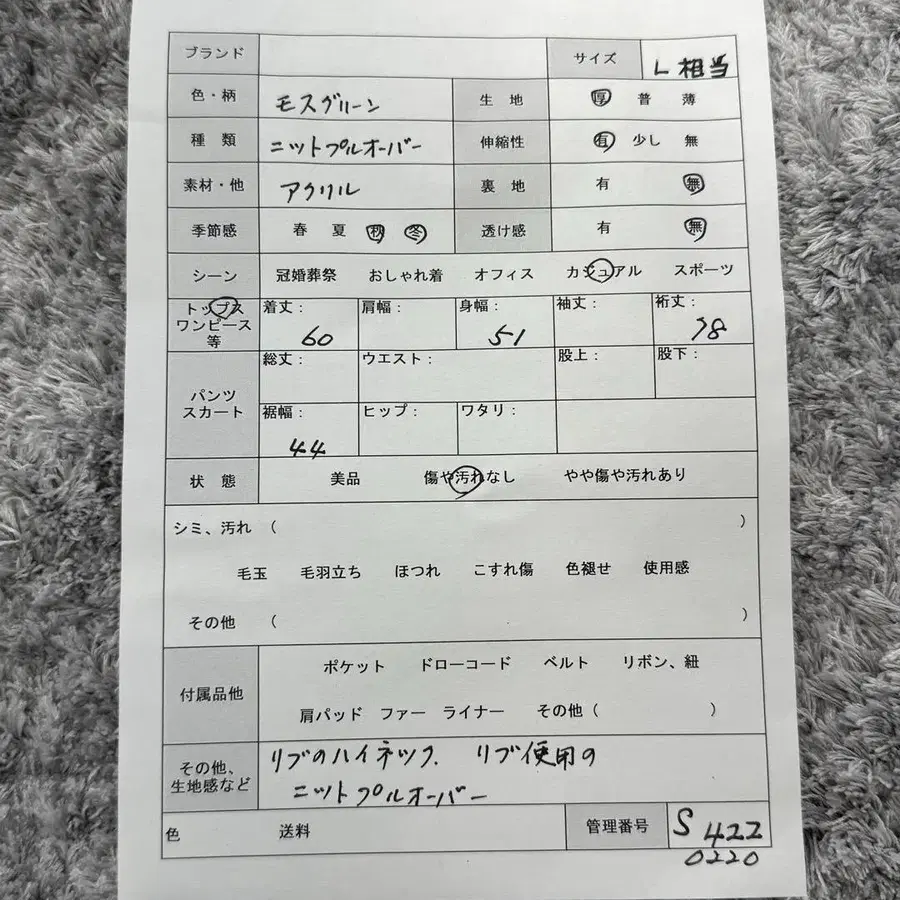 ブランド サイズ L 相当
色・柄 モスグリーン 生 地 厚 普 薄
種 類 ニットプルオーバー 伸縮性 有 少し 無
素材・他 アクリル 裏 地 有 無
季節感 春 夏 秋 冬 透け感 有 無
シーン 冠婚葬祭 おしゃれ着 オフィス カジュアル スポーツ
トップス
ワンピース
等
着丈： 肩幅： 身幅： 袖丈： 裄丈：
60 51 78
パンツ
スカート
総丈： ウエスト： 股上： 股下：
裾幅： ヒップ： ワタリ：
44
状 態 美品 傷や汚れなし やや傷や汚れあり
シミ、汚れ （ ）
毛玉 毛羽立ち ほつれ こすれ傷 色褪せ 使用感
その他 （ ）
付属品他
ポケット ドローコード ベルト リボン、紐
肩パッド ファー ライナー その他（ ）
その他、
生地感など
リブのハイネック. リブ使用の
ニットプルオーバー
色 送料 管理番号 S 422
0220